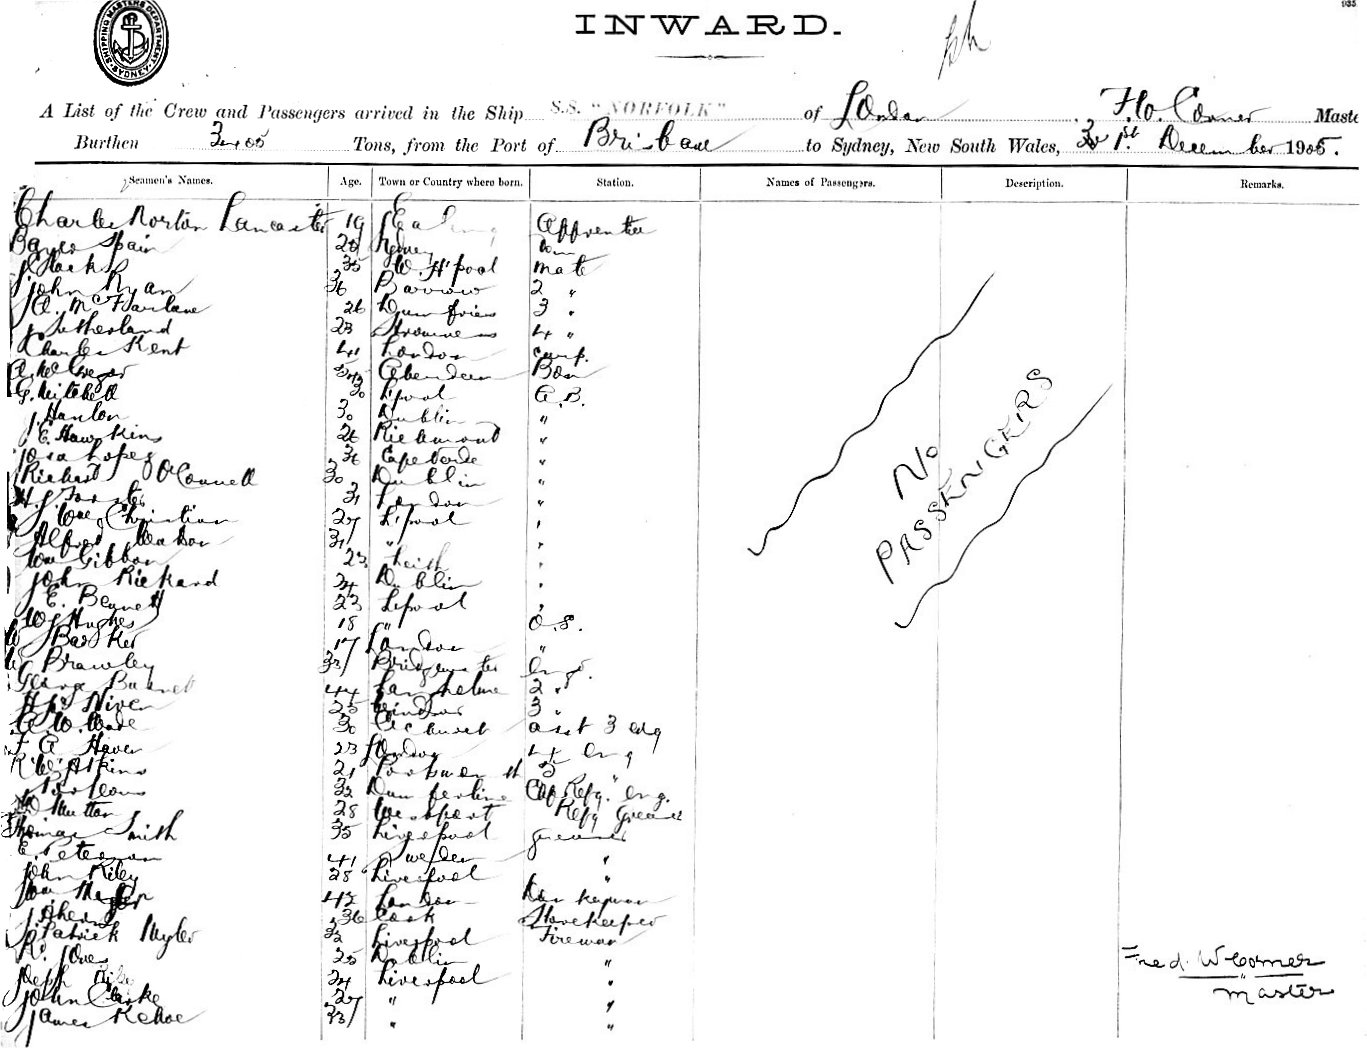 935
SHIPPING MASTERS DEPARTMENT SYDNEY
INWARD.
A List of the Crew and Passengers arrived in the Ship S.S. "NORFOLK" of London F.W. Corner Maste
Burthen Tons, from the Port of Brisbane to Sydney, New South Wales, 1st December 1905.
Seamen's Names. Age. Town or Country where born. Station. Names of Passengers. Description. Remarks.
Charles Norton Lancaster 19 Ealing Apprentice
Spain 20 Sydney
35 W. H'pool Mate
John Ryan 36 Barrow 2 "
A. McFarlane 26 Dumfries 3 "
J Sutherland 23 Stromness 4 "
Charles Kent 41 London Carp.
A McGregor Aberdeen Bosn
G. Mitchell 30 L'pool A.B.
J. Hanlon 30 Dublin "
J. E. Hawkins 26 Richmond "
Lopez 36 Cape Verde "
Richard O'Connell 30 Dublin "
H. J. Forster 31 London "
J. Wm Christian 27 L'pool "
Alfred 31 " "
Wm Gibbon 23 Leith "
John Rickard 24 Dublin "
J. E. Bennett 23 L'pool "
W J Hughes 18 " O.S.
W Barker 17 London "
Brawley 33 Bridgewater Engr.
George Burnett 44 Langholme 2 "
Niven 25 Windsor 3 "
A. W. Wade 30 asst 3 eng
F A Haven 23 London 4 Eng
R. W. Atkins 21 Portsmouth 5 "
32 Dumferline Chf Refg. Eng.
D Mutton 28 Westport Refg Greaser
Thomas Smith 35 Liverpool greaser
E. Peterson 41 Sweden "
John Riley 28 Liverpool "
Wm 42 London Donkeyman
J. Ahern 36 Cork Storekeeper
Patrick Myler 32 Liverpool Fireman
R. Jones 25 Dublin "
Joseph Riley 24 Liverpool "
John Clarke 27 " "
James Kehoe 33 " "
No
PASSENGERS
Fred. W Corner
Master